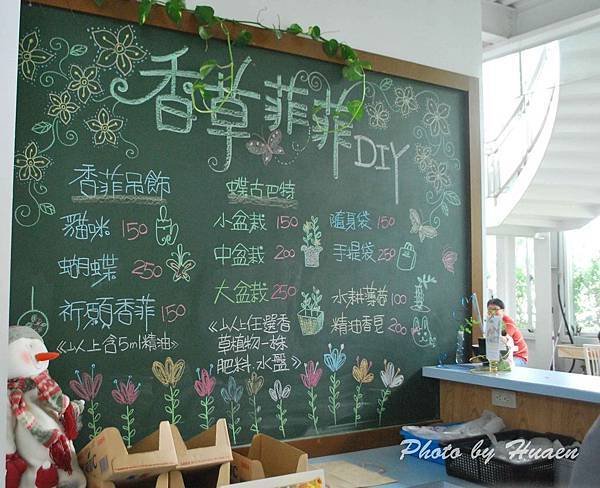 香草菲菲DIY
香菲吊飾
貓咪 150
蝴蝶 250
祈願香菲 150
《以上含5ml精油》
蝶古巴特
小盆栽 150
中盆栽 200
大盆栽 250
《以上任選香
草植物一株
肥料.水盤》
隨身袋 150
手提袋 250
水耕蕃茄 100
精油香皂 200
Photo by Huaen